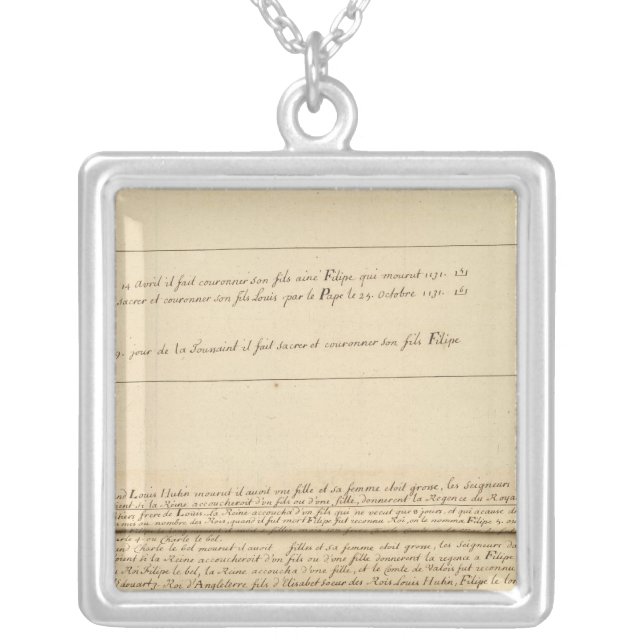 14 Avril il fait couronner son fils ainé Filipe qui mourut 1131. 151
sacrer et couronner son fils Louis par le Pape le 25. Octobre 1131. 161
9. jour de la Toussaint il fait sacrer et couronner son fils Filipe
nd Louis Hutin mourut il avoit vne fille et sa femme etoit grosse, les Seigneurs
ient si la Reine accoucheroit d'vn fils ou d'vne fille, donnerent la Regence du Roya
frere de Louis. la Reine accoucha d'vn fils qui ne vecut que 8 jours, et qui a cause de
mis au nombre des Rois, quand il fut mort Filipe fut reconnu Roi, on le nomme Filipe 5. ou
4. ou Charle le bel.
nd Charle le bel mourut il avoit filles et sa femme etoit grosse, les Seigneurs da
oient si la Reine accoucheroit d'vn fils ou d'vne fille donnerent la regence a Filipe
Roi Filipe le bel, la Reine accoucha d'vne fille, et le Comte de Valois fut reconnu
Edouart 3. Roi d'Angleterre fils d'Elisabet Soeur des Rois Louis Hutin, Filipe le lon